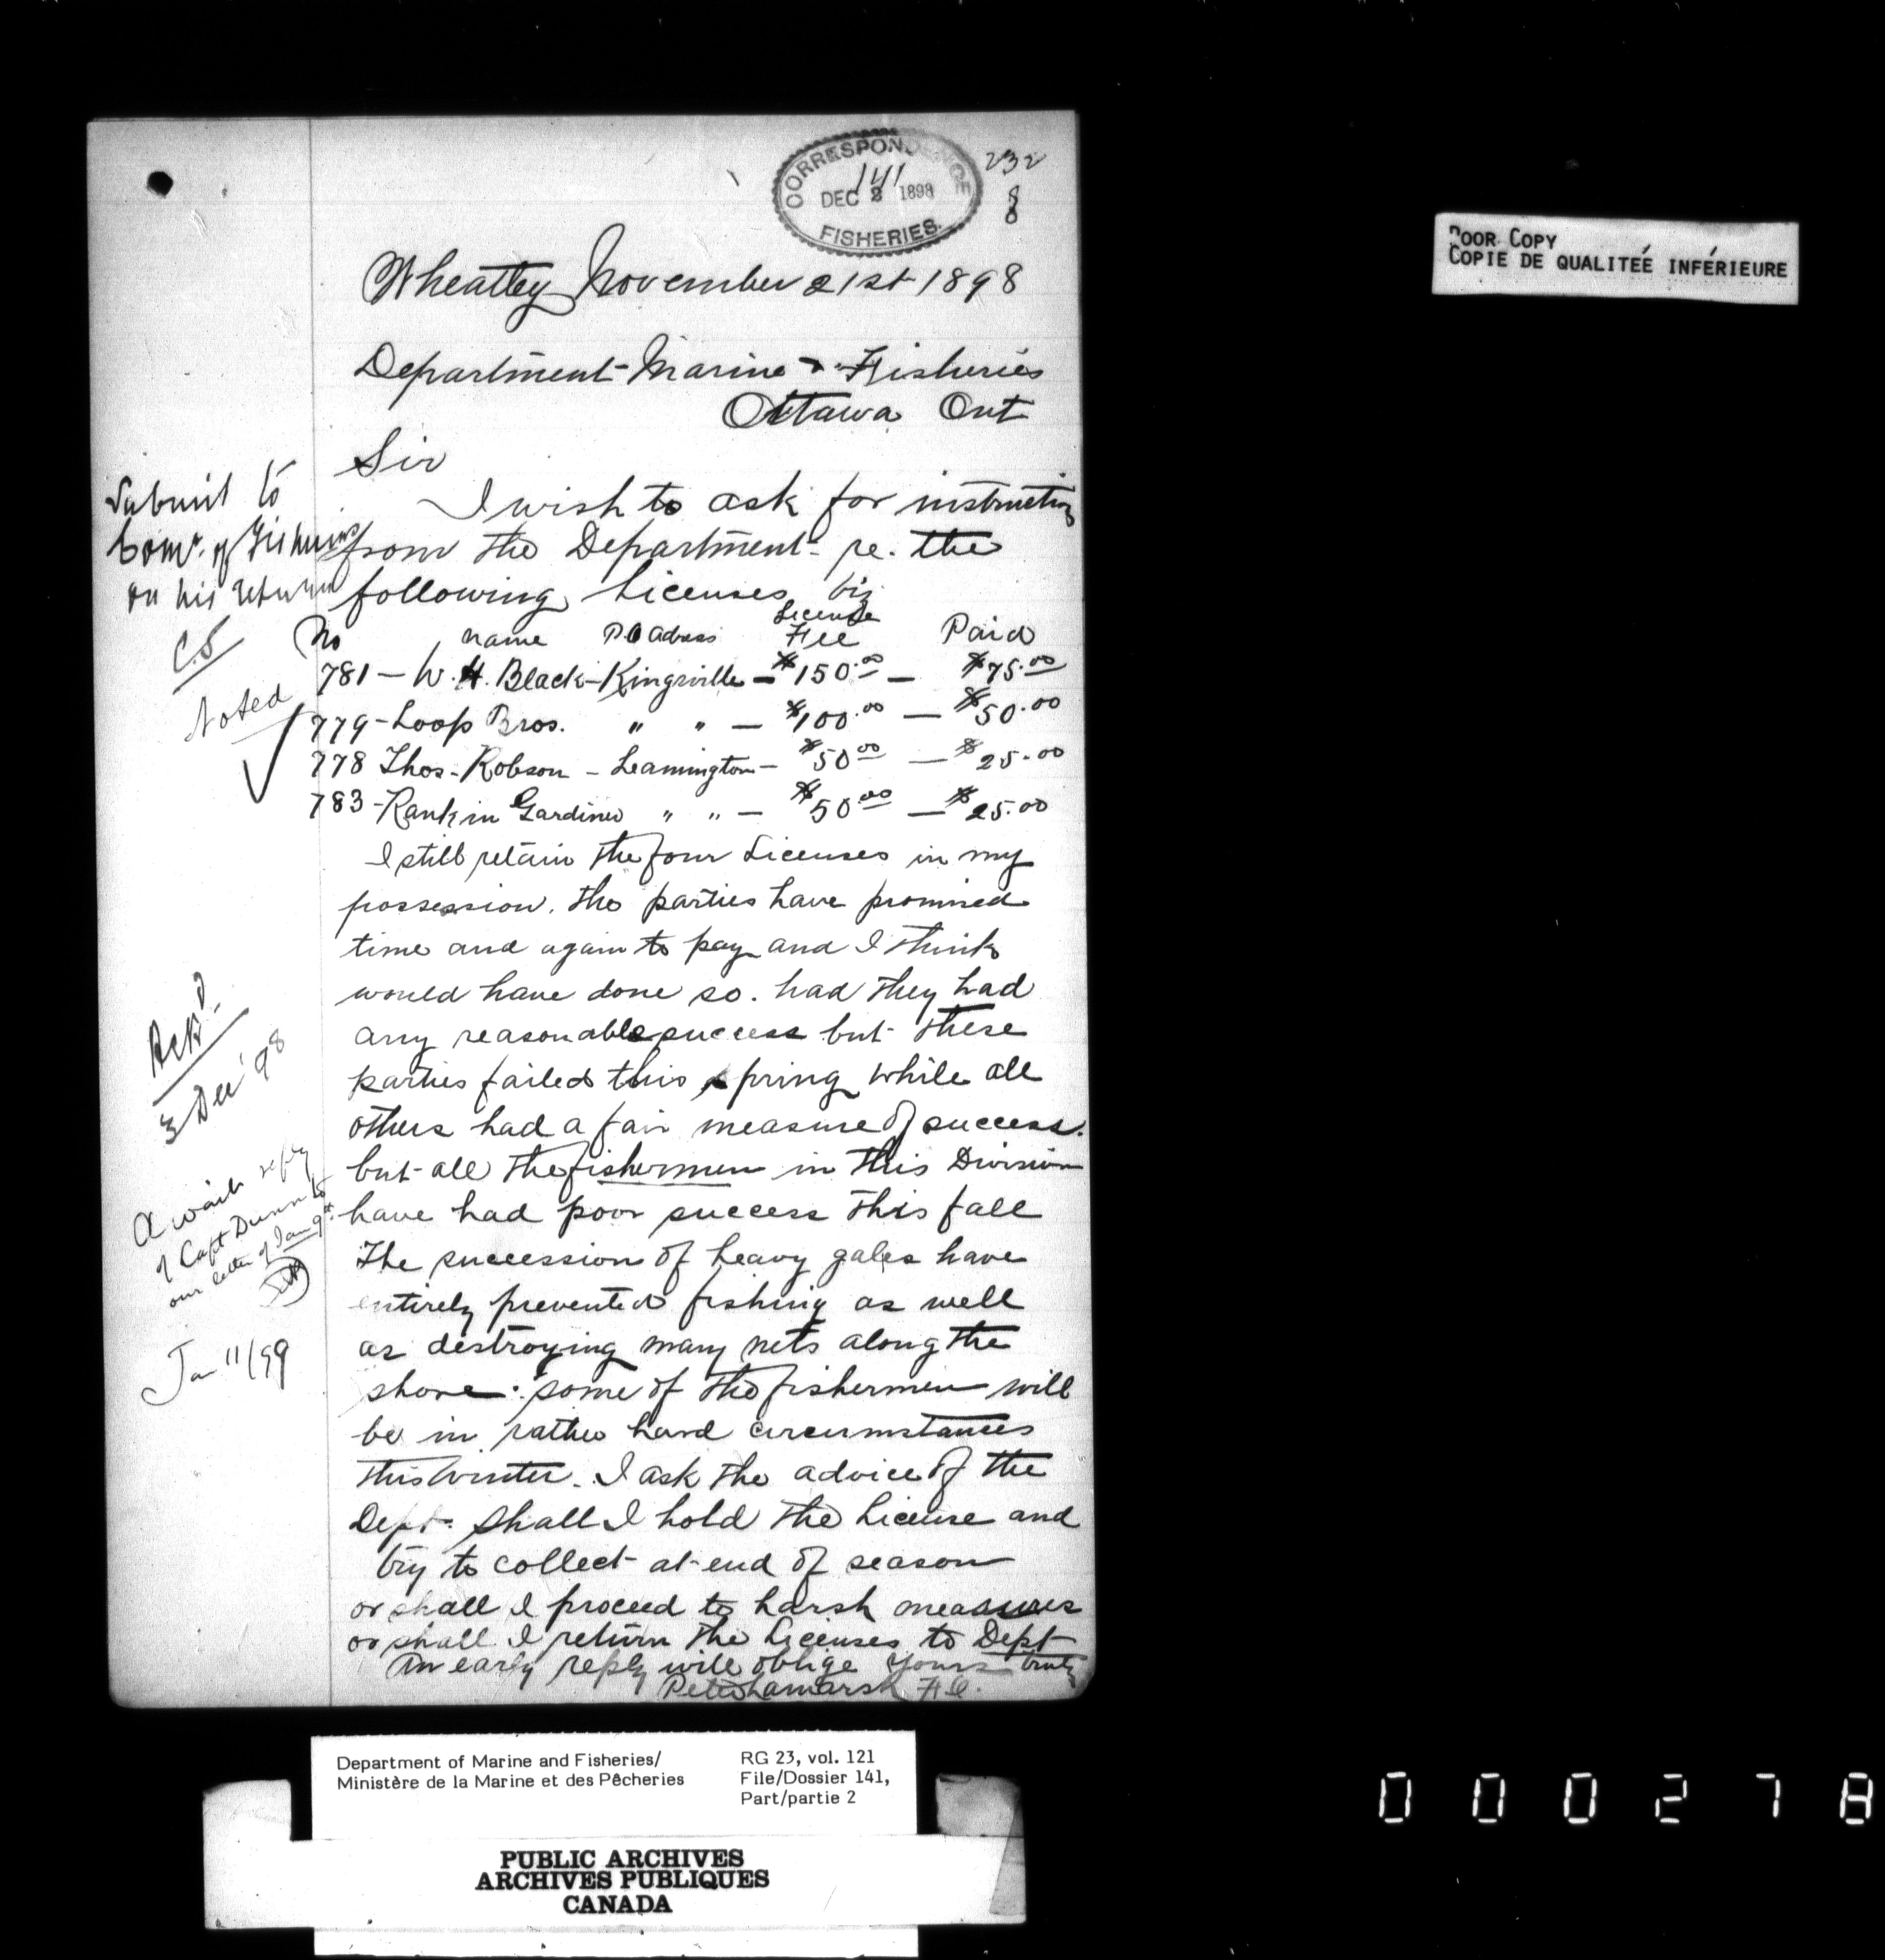 CORRESPONDENCE
141
DEC 2 1898
FISHERIES.
232
8
8
POOR COPY
COPIE DE QUALITEÉ INFÉRIEURE
Wheatley November 21st 1898
Department Marine & Fisheries
Ottawa Ont
Sir
I wish to ask for instruction
from the Department re. the
following Licenses viz
No name P.O Adress License Fee Paid
781 — W. H. Black - Kingsville — $150.00 — $75.00
779 - Loop Bros. " " — $100.00 — $50.00
778 Thos. Robson - Leamington - $50.00 — $25.00
783 - Rankin Gardiner " " — $50.00 — $25.00
I still retain the four Licenses in my
possession. the parties have promised
time and again to pay and I think
would have done so. had they had
any reasonable success but these
parties failed this spring while all
others had a fair measure of success.
but all the fishermen in this Division
have had poor success this fall
The succession of heavy gales have
entirely prevented fishing as well
as destroying many nets along the
shore. some of the fishermen will
be in rather hard circumstances
this winter. I ask the advice of the
Dept. shall I hold the License and
try to collect at end of season
or shall I proceed to harsh measures
or shall I return the Licenses to Dept
An early reply will oblige yours truly
Peter Lamarsh F.O.
Submit to
Comr. of Fisheries
on his return
C.S
Noted
Ackd.
3 Dec '98
Await reply
of Capt Dunn to
our letter of Jan 9th
Jan 11/99
Department of Marine and Fisheries/
Ministère de la Marine et des Pêcheries
RG 23, vol. 121
File/Dossier 141,
Part/partie 2
PUBLIC ARCHIVES
ARCHIVES PUBLIQUES
CANADA
000278